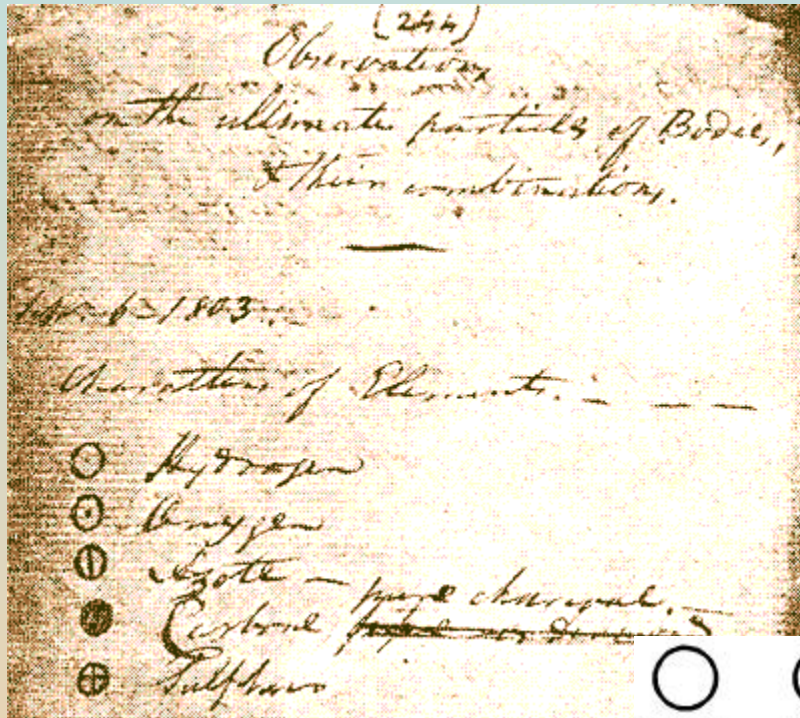 (244)
Observations
on the ultimate particles of Bodies,
& their combinations.
Sep. 6 - 1803.
Characters of Elements. - - -
Hydrogen
Oxygen
Azote
Carbone, pure charcoal. -
Sulphur